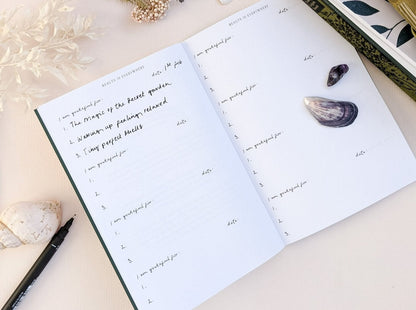 BEAUTY IS EVERYWHERE
date: 1st Feb
I am grateful for:
1. The magic of the secret garden
2. Waking up feeling relaxed
3. Tiny perfect shells
date:
I am grateful for:
1.
2.
3.
date:
I am grateful for:
1.
2.
3.
I am grateful for:
1.
2.
BEAUTY IS EVERYWHERE
date:
I am grateful for:
1.
2.
3.
I am grateful for:
1.
2.
3.
date:
I am grateful for:
1.
2.
3.
date:
I am grateful for:
1.
2.
3.